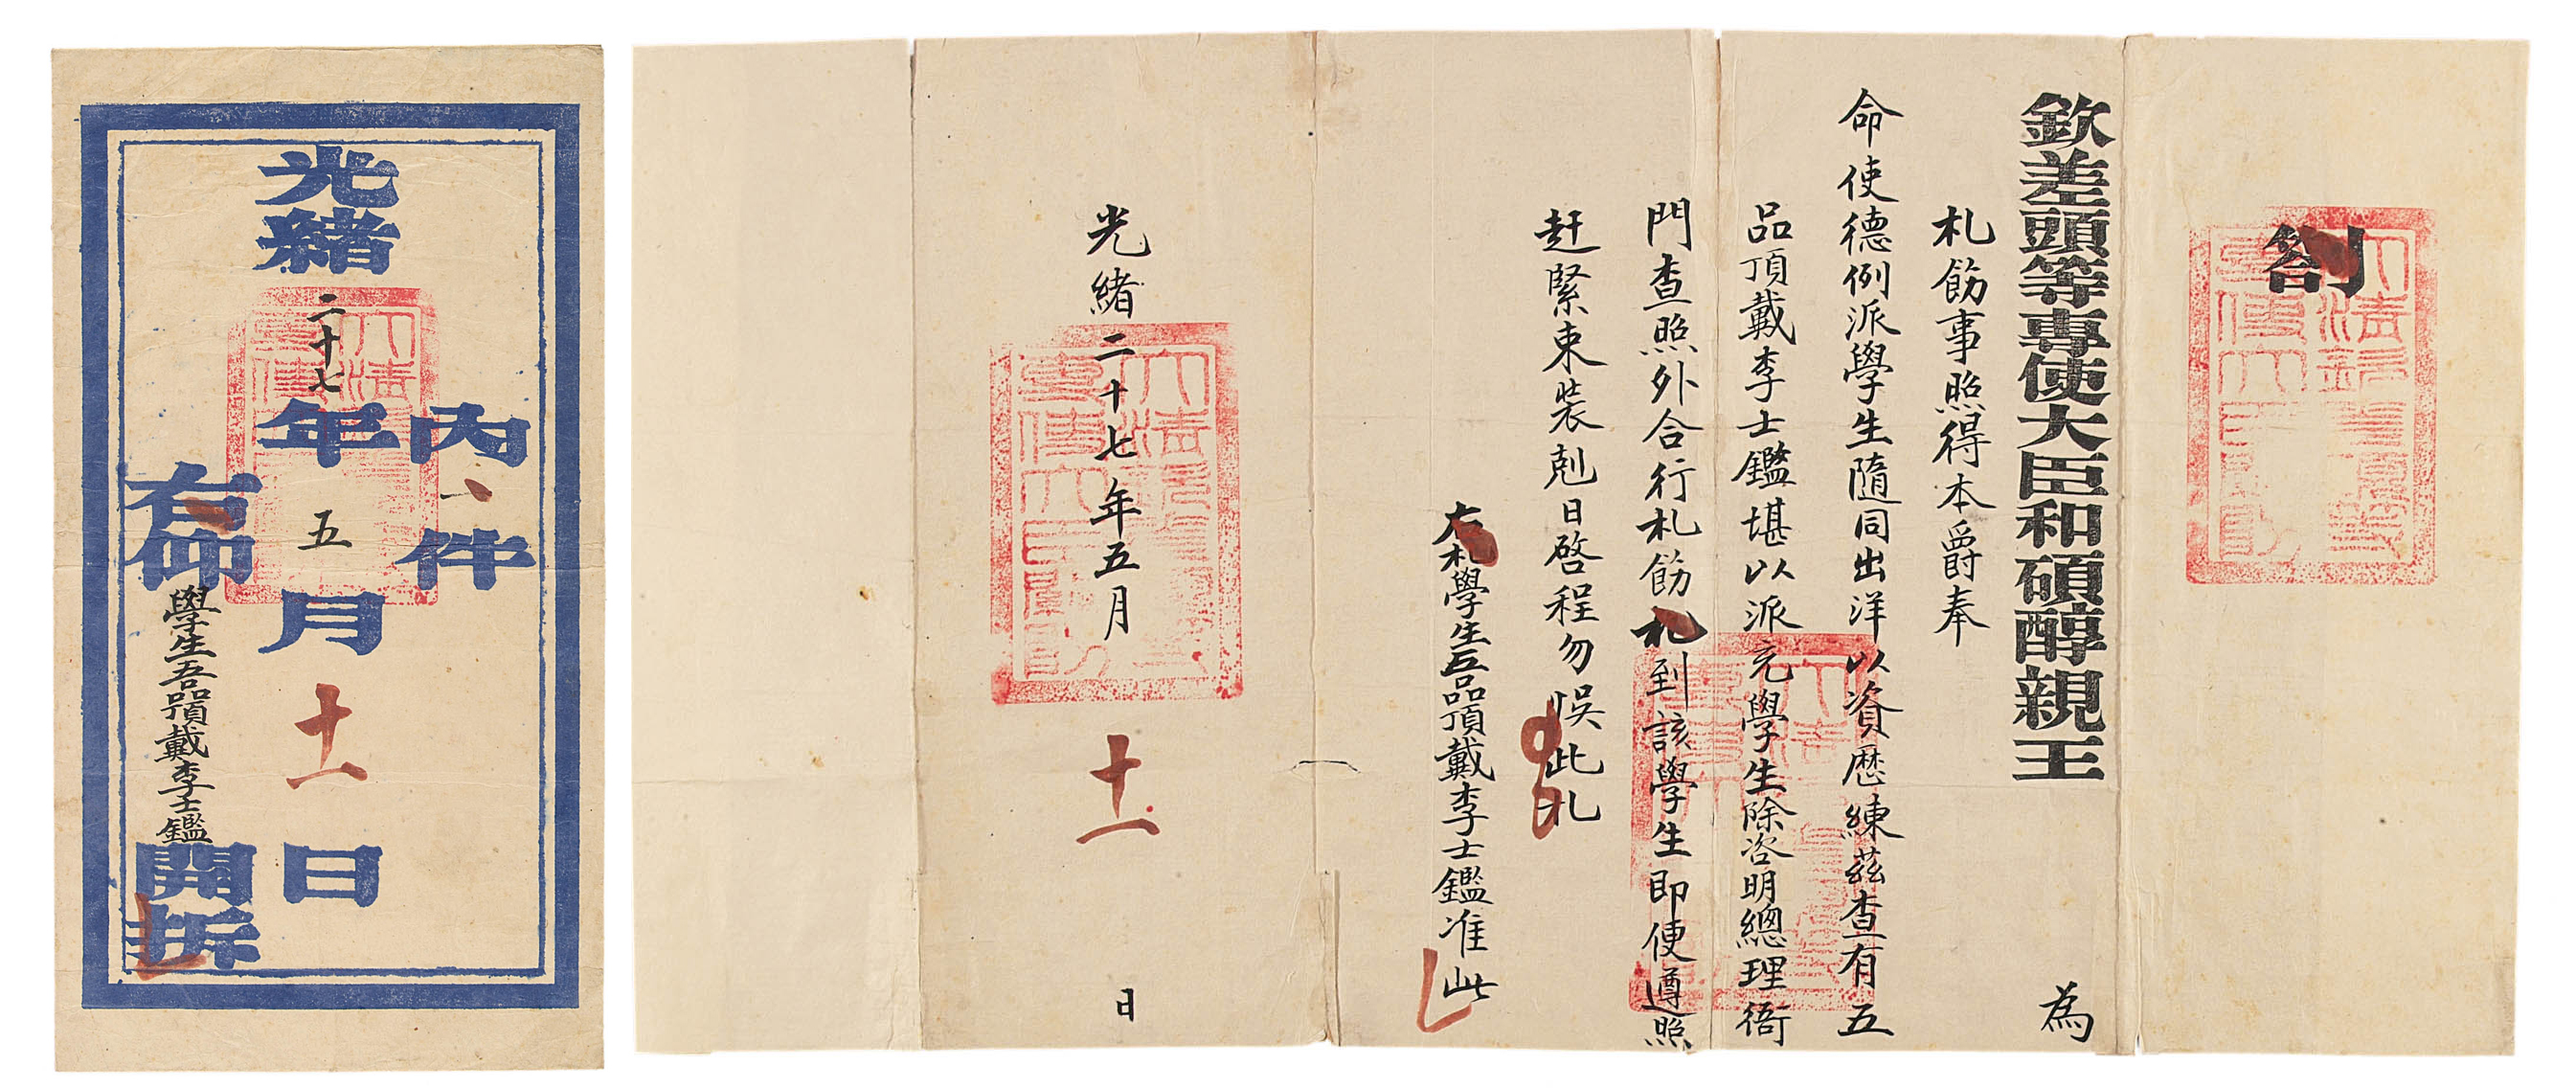 內一件
光緒二十七年五月十一日
右仰學生五品頂戴李士鑑開拆
劄
欽差頭等專使大臣和碩醇親王為
札飭事照得本爵奉
命使德例派學生隨同出洋以資歷練茲查有五
品頂戴李士鑑堪以派充學生除咨明總理衙
門查照外合行札飭札到該學生即便遵照
赶緊束裝剋日啓程勿悞此札
右札學生五品頂戴李士鑑准此
光緒二十七年五月十一日